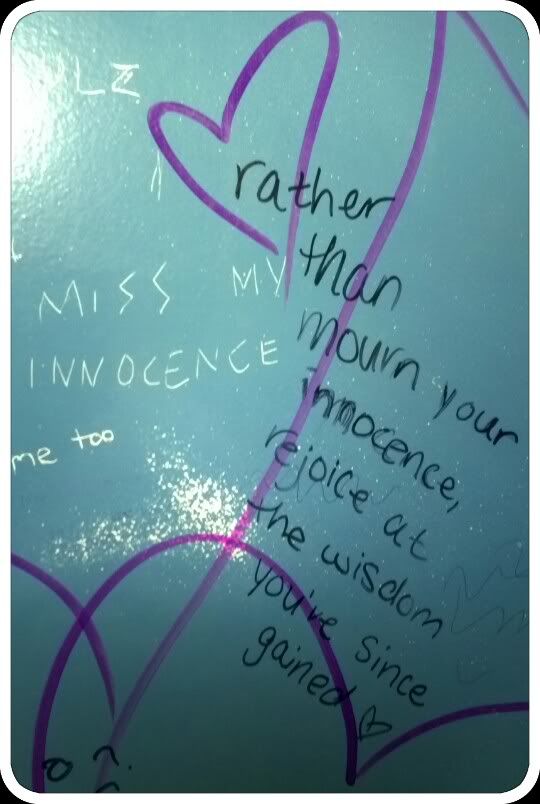 PLZ
I MISS MY
INNOCENCE
me too
rather
than
mourn your
innocence,
rejoice at
the wisdom
you've since
gained